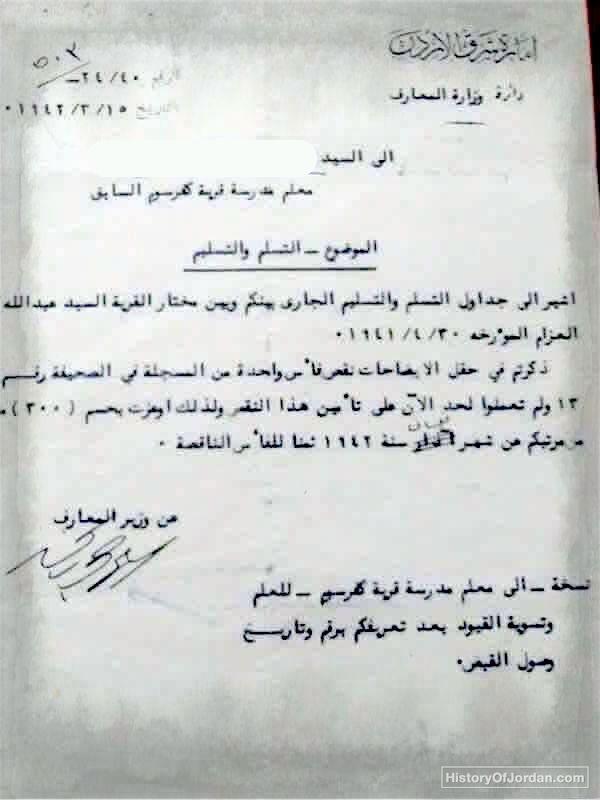 امارة شرق الاردن
٥٠٣
الرقم ٢٤/٤٠ــ
وزارة المعارف
التاريخ ١٩٤٢/٣/١٥٠
الى السيد
معلم مدرسة قرية كفرسوم السابق
الموضوع ــ التسلم والتسليم
اشير الى جداول التسلم والتسليم الجارى بينكم وبين مختار القرية السيد عبدالله
العزام المؤرخه ١٩٤١/٤/٣٠٠
ذكرتم في حقل الايضاحات نقص فأس واحدة من المسجلة في الصحيفة رقم
١٣ ولم تعملوا لحد الآن على تأمين هذا النقص ولذلك اوعزت بحسم (٣٠٠) م
من مرتبكم عن شهر نيسان سنة ١٩٤٢ ثمنا للفأس الناقصة ٠
عن وزير المعارف
نسخة ــ الى معلم مدرسة قرية كفرسوم ــ للعلم
وتسوية القيود بعد تعريفكم برقم وتاريخ
وصول القبض٠
HistoryOfJordan.com